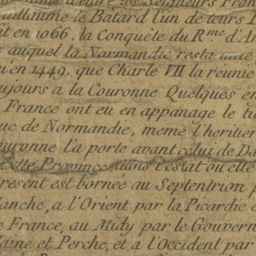 Seigneurs
Guillaume le Batard l'un de leurs D
it en 1066. la Conquête du R.me d'A
auquel la Normandie resta unie
u'en 1449. que Charle VII la reunie
oujours a la Couronne Quelques en
France ont eu en appanage le ti
uc de Normandie, meme l'heritier
ouronne l'a porté avant celui de Da
Cette Province dans l'estat ou elle
resent est bornée au Septentrion p
anche, a l'Orient par la Picardie e
e France, au Midy par le Gouvern
aine et Perche, et a l'Occident par